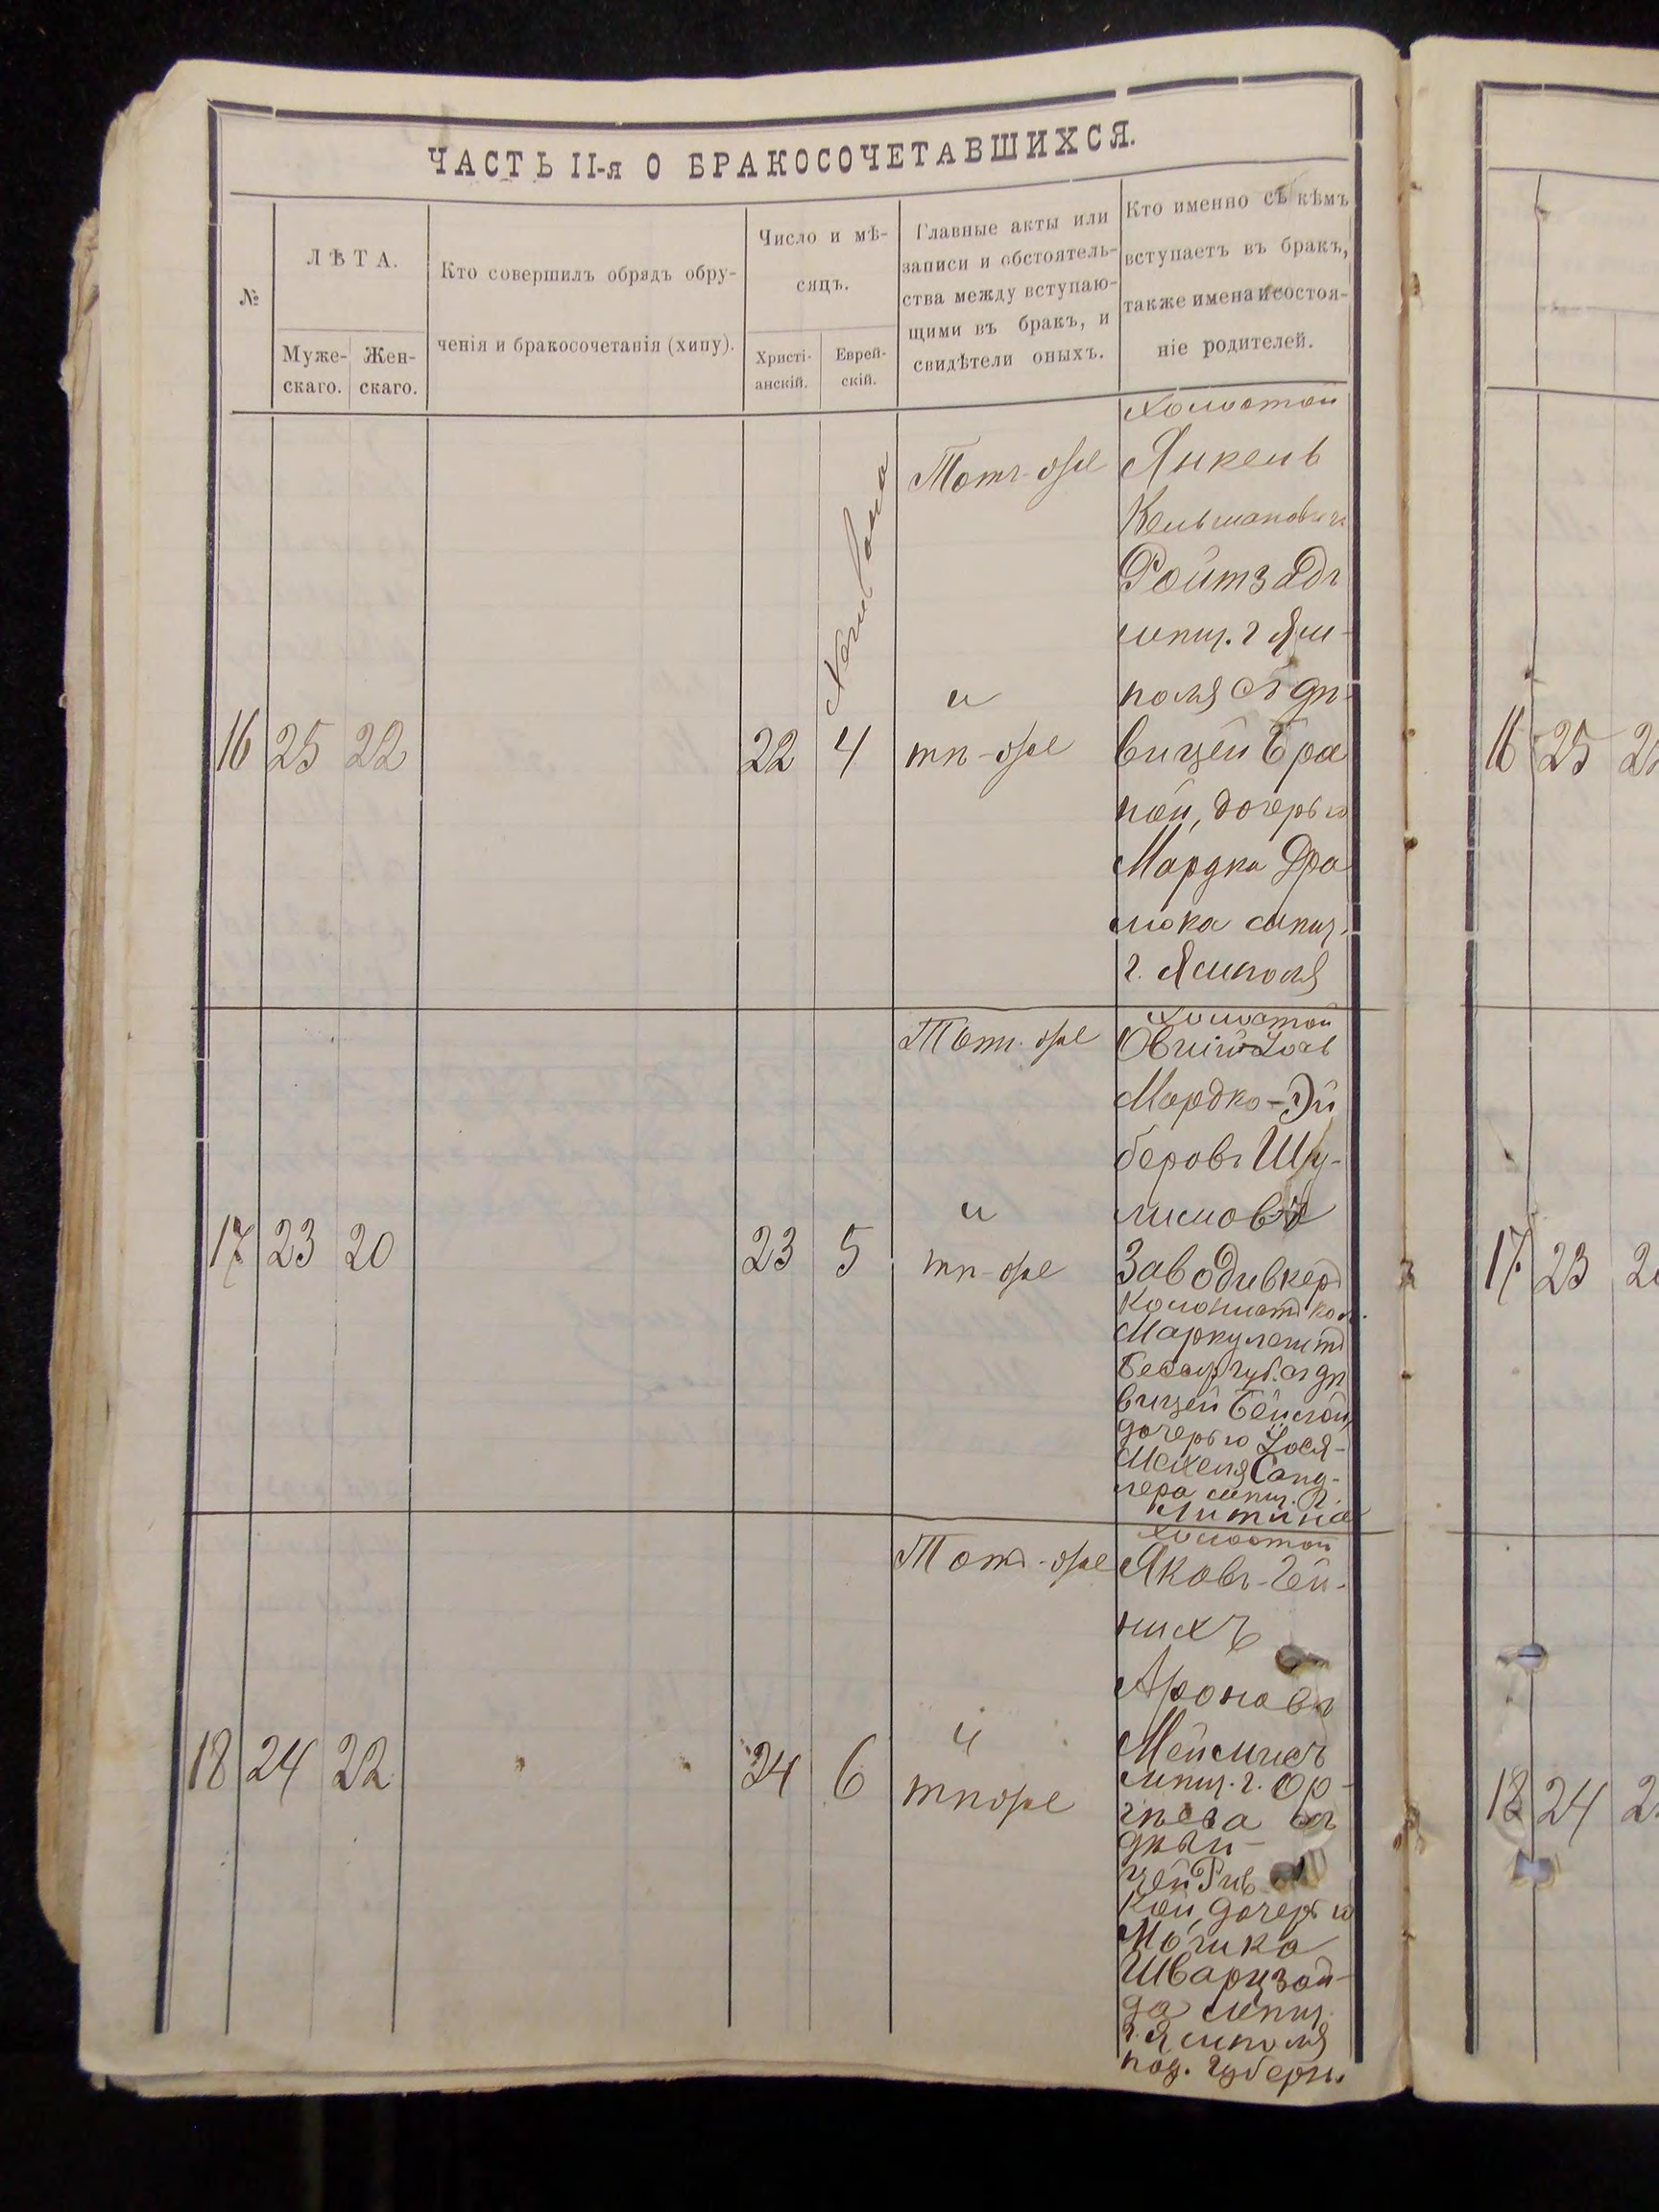 ЧАСТЬ II-я О БРАКОСОЧЕТАВШИХСЯ.
№
ЛѢТА.
Муже-
скаго.
Жен-
скаго.
Кто совершилъ обрядъ обру-
ченія и бракосочетанія (хипу).
Число и мѣ-
сяцъ.
Христі-
анскій.
Еврей-
скій.
Главные акты или
записи и обстоятель-
ства между вступаю-
щими въ бракъ, и
свидѣтели оныхъ.
Кто именно съ кѣмъ
вступаетъ въ бракъ,
также имена и состоя-
ніе родителей.
16 25 22
22 4
Тотъ-же
и
тѣ-же
холостой
Янкель
Кельмановичъ
Ройтзадъ
мѣщ. г Ям-
поля съ дѣ-
вицей Бра
ной, дочерью
Мардка Дра
люка мѣщ.
г. Ямполя
17 23 20
23 5
Тотъ-же
и
тѣ-же
холостой
Овшій-Іось
Мордко-Эй
беровъ Шу-
лимовъ
Заводивкеръ
колонистъ кол.
Маркулештъ
Бессар губ. съ дѣ
вицей Бейлой,
дочерью Іося-
Мехеля Санд-
лера мѣщ. г.
Литина
18 24 22
24 6
Тотъ-же
и
тѣ же
холостой
Яковъ-Гей-
нихъ
Ароновъ
Мейлихъ
мѣщ. г. Ор-
гѣева съ
дѣви-
цей Рив
кой, дочерью
Мошка
Шварцзой-
да мѣщ.
г. Ямполя
под. губерн.
16 25
17 23
18 24